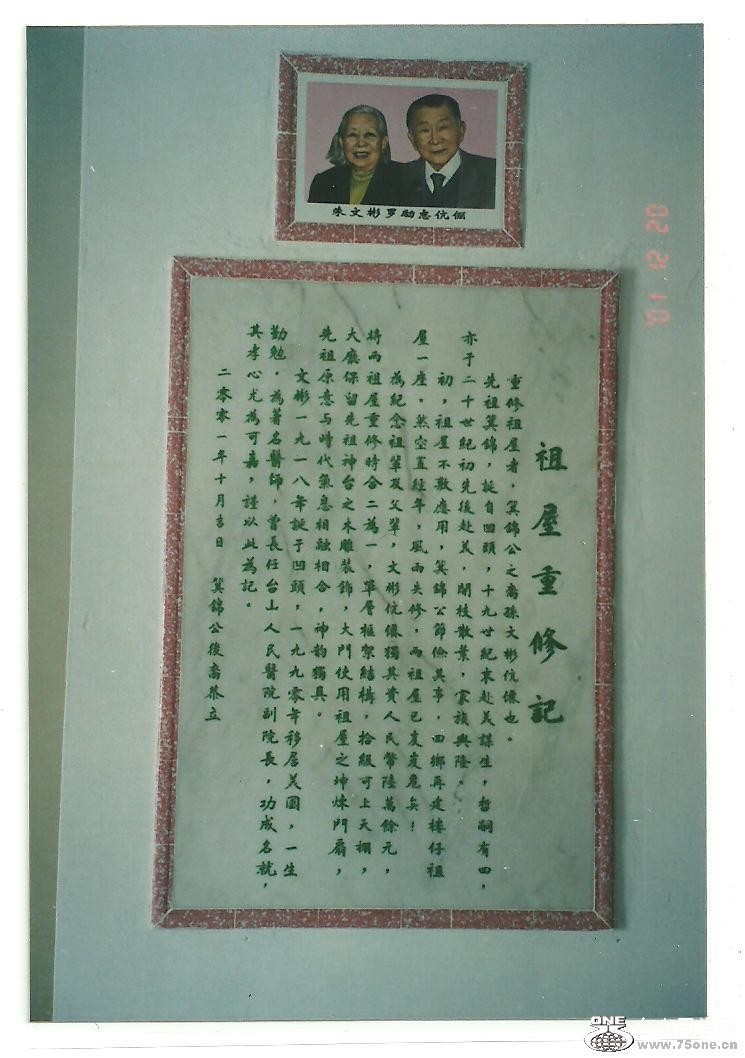 朱文彬罗励志伉俪
01 12 20
祖屋重修记
重修祖屋者，箕錦公之裔孫文彬伉儷也。
先祖箕錦，誕自凹頭，十九世紀末赴美謀生，哲嗣有四，
亦于二十世紀初先後赴美，開枝散葉，家族興隆。
初，祖屋不敷應用，箕錦公節儉其事，回鄉再建樓仔祖
屋一座。然空置經年，風雨失修，兩祖屋已岌岌危矣！
為紀念祖輩及父輩，文彬伉儷獨其資人民幣陸萬餘元，
將兩祖屋重修時合二為一，單層框架結構，拾級可上天棚，
大廳保留先祖神台之木雕裝飾，大門使用祖屋之坤炼門扇，
先祖原意与時代氣息相融相合，神韵獨具。
文彬一九一八年誕于凹頭，一九九零年移居美國，一生
勤勉，為著名醫師，曾長任台山人民醫院副院長，功成名就，
其孝心尤為可嘉，謹以此為記。
二零零一年十月吉日 箕錦公後裔恭立
ONE
www.75one.cn